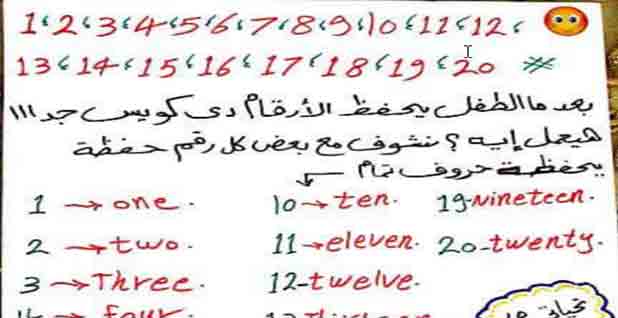 1، 2، 3، 4، 5، 6، 7، 8، 9، 10، 11، 12،
13، 14، 15، 16، 17، 18، 19، 20 #
بعد ما الطفل يحفظ الأرقام دى كويس جدا!!
هيعمل إيه؟ نشوف مع بعض كل رقم حفظة
يحفظة حروف تمام
1 → one. 10 → ten. 19-Nineteen.
2 → two. 11 → eleven. 20-twenty.
3 → Three. 12-twelve.
four